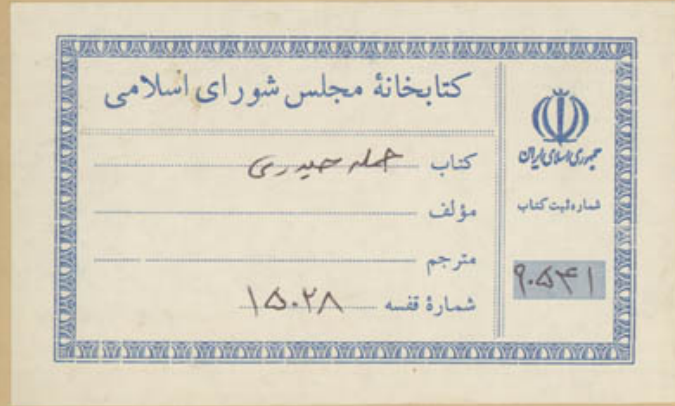 کتابخانهٔ مجلس شورای اسلامی
کتاب حمله حیدری
مؤلف
مترجم
شمارهٔ قفسه ۱۵۰۲۸
جمهوری اسلامی ایران
شماره ثبت کتاب
۹۰۵۴۱